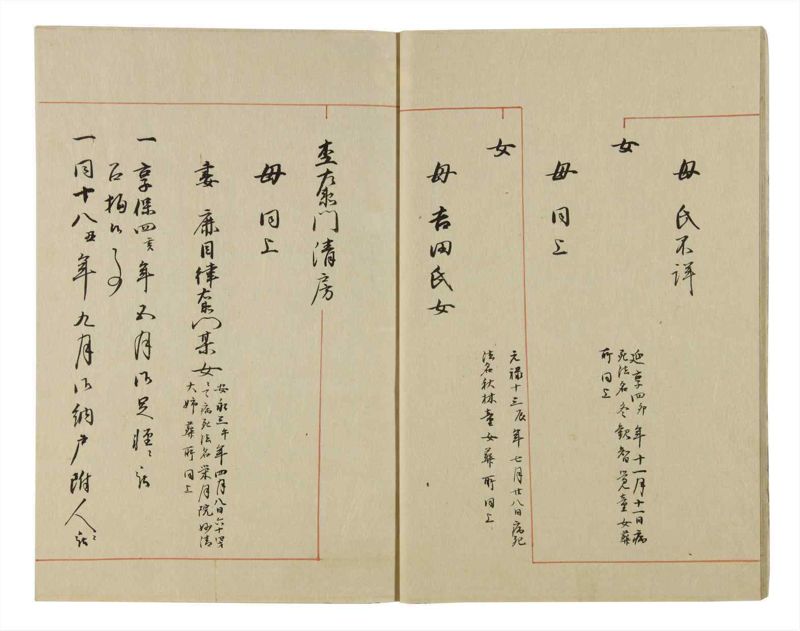 母 氏不詳
延享四卯年十一月十一日病
死法名冬観智覚童女葬
所同上
女
母 同上
女
元禄十三辰年七月廿八日病死
法名秋林童女葬所同上
母 吉田氏女
左衛門清房
母 同上
妻 廉目律左衛門某女
安永三午年四月八日六十四歳
ニて病死法名葉月院妙清
大姉葬所同上
一 享保四亥年五月
一 同十八丑年九月御納戸附人